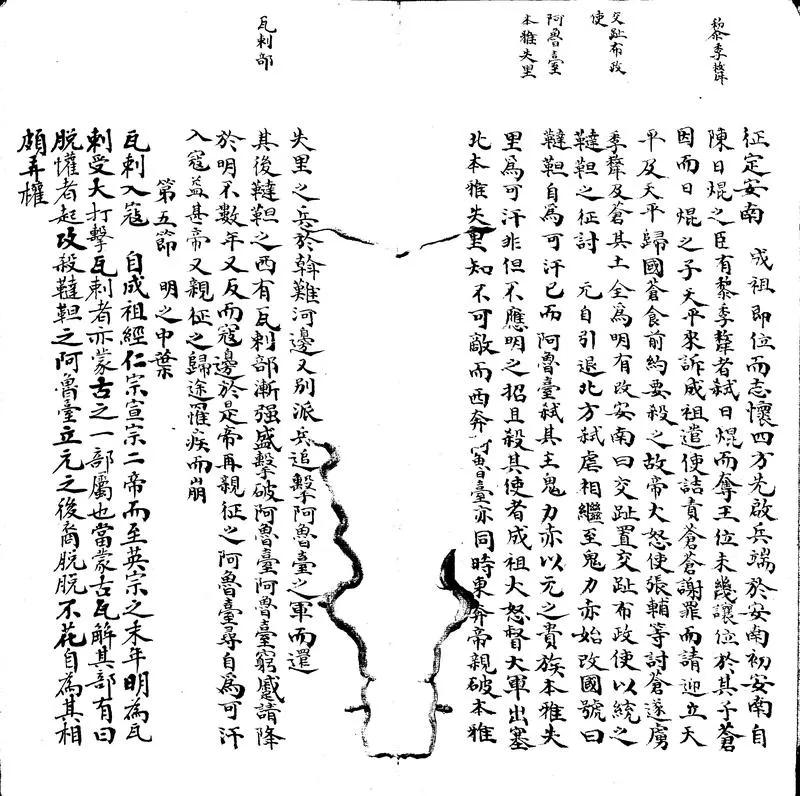 黎季犛
交趾布政
使
阿魯臺
本雅失里
征定安南　成祖即位而志懷四方先啟兵端於安南初安南自
陳日焜之臣有黎季犛者弒日焜而奪王位未幾讓位於其子蒼
因而日焜之子天平來訴成祖遣使詰責蒼蒼謝罪而請迎立天
平及天平歸國蒼食前約要殺之故帝大怒使張輔等討蒼遂虜
季犛及蒼其土全為明有改安南曰交趾置交趾布政使以統之
韃靼之征討　元自引退北方弒虐相繼至鬼力赤始改國號曰
韃靼自為可汗已而阿魯臺弒其主鬼力赤以元之貴族本雅失
里爲可汗非但不應明之招且殺其使者成祖大怒督大軍出塞
北本雅失里知不可敵而西奔阿魯臺亦同時東奔帝親破本雅
瓦剌部
失里之兵於斡難河邊又別派兵追擊阿魯臺之軍而還
其後韃靼之西有瓦剌部漸强盛擊破阿魯臺阿魯臺窮蹙請降
於明不數年又反而寇邊於是帝再親征之阿魯臺尋自爲可汗
入寇益甚帝又親征之歸途罹疾而崩
第五節　明之中葉
瓦剌入寇　自成祖經仁宗宣宗二帝而至英宗之末年明為瓦
剌受大打擊瓦剌者亦蒙古之一部屬也當蒙古瓦解其部有曰
脫懽者起攻殺韃靼之阿魯臺立元之後裔脫脫不花自為其相
頗弄權